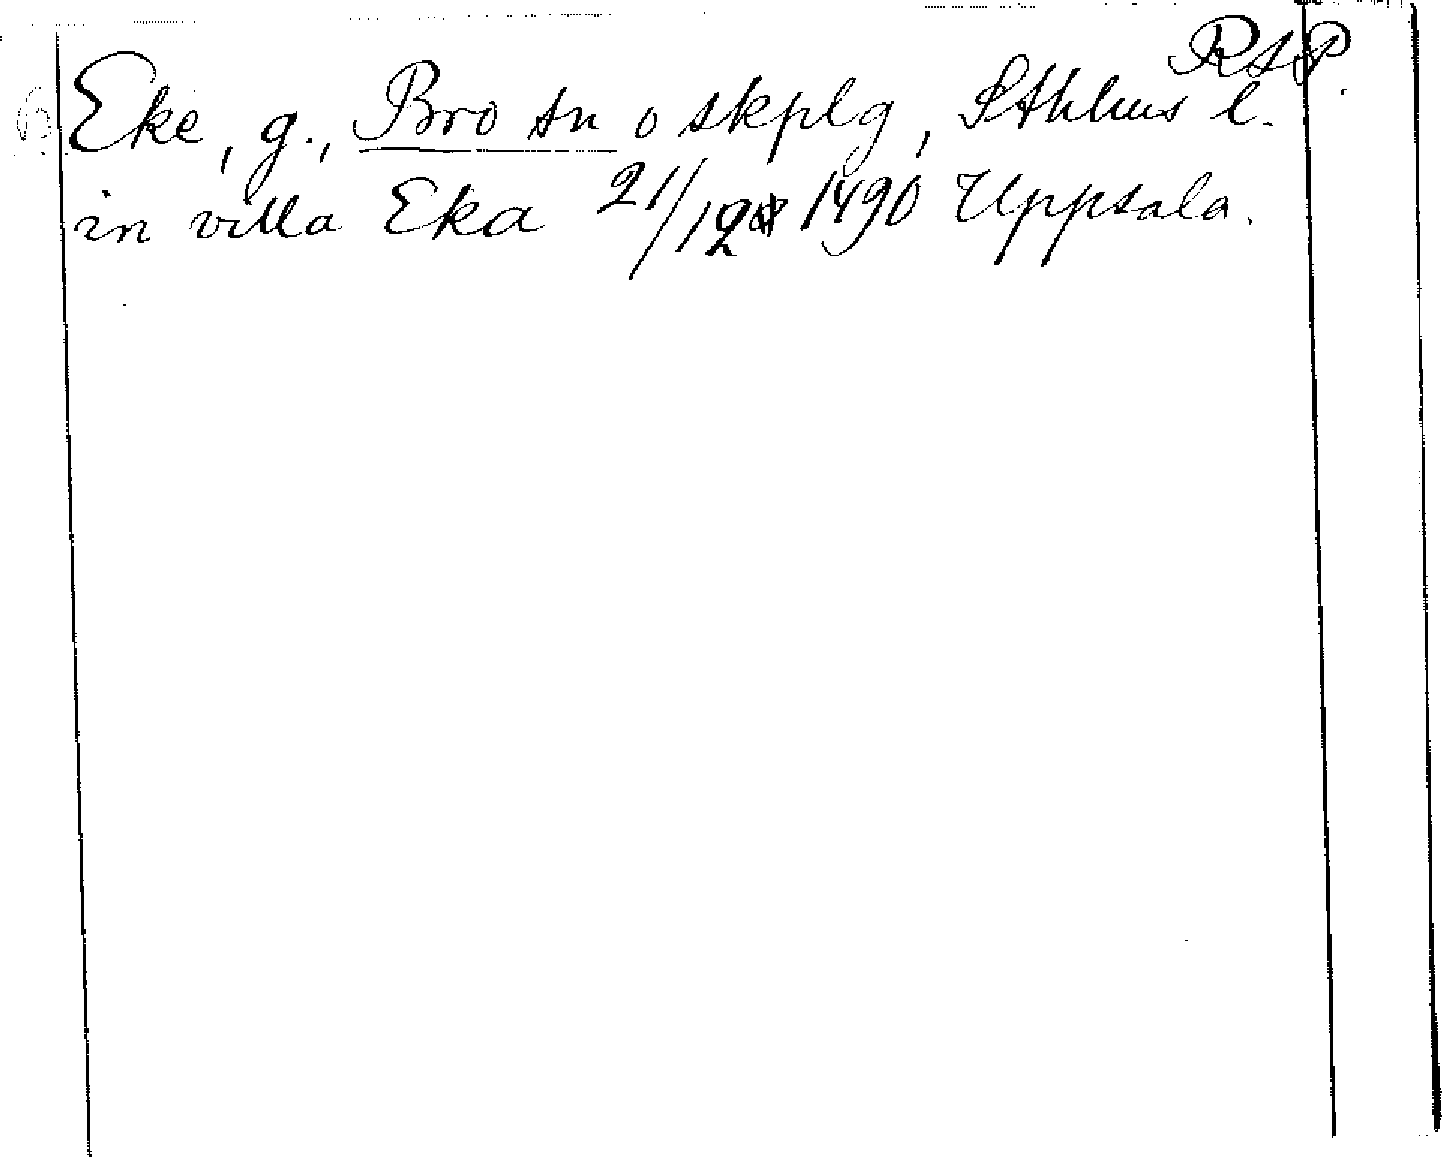 RAP.
Eke, g., Bro sn o skplg, Sthlms l.
in villa Eka 21/12 1490 Uppsala.